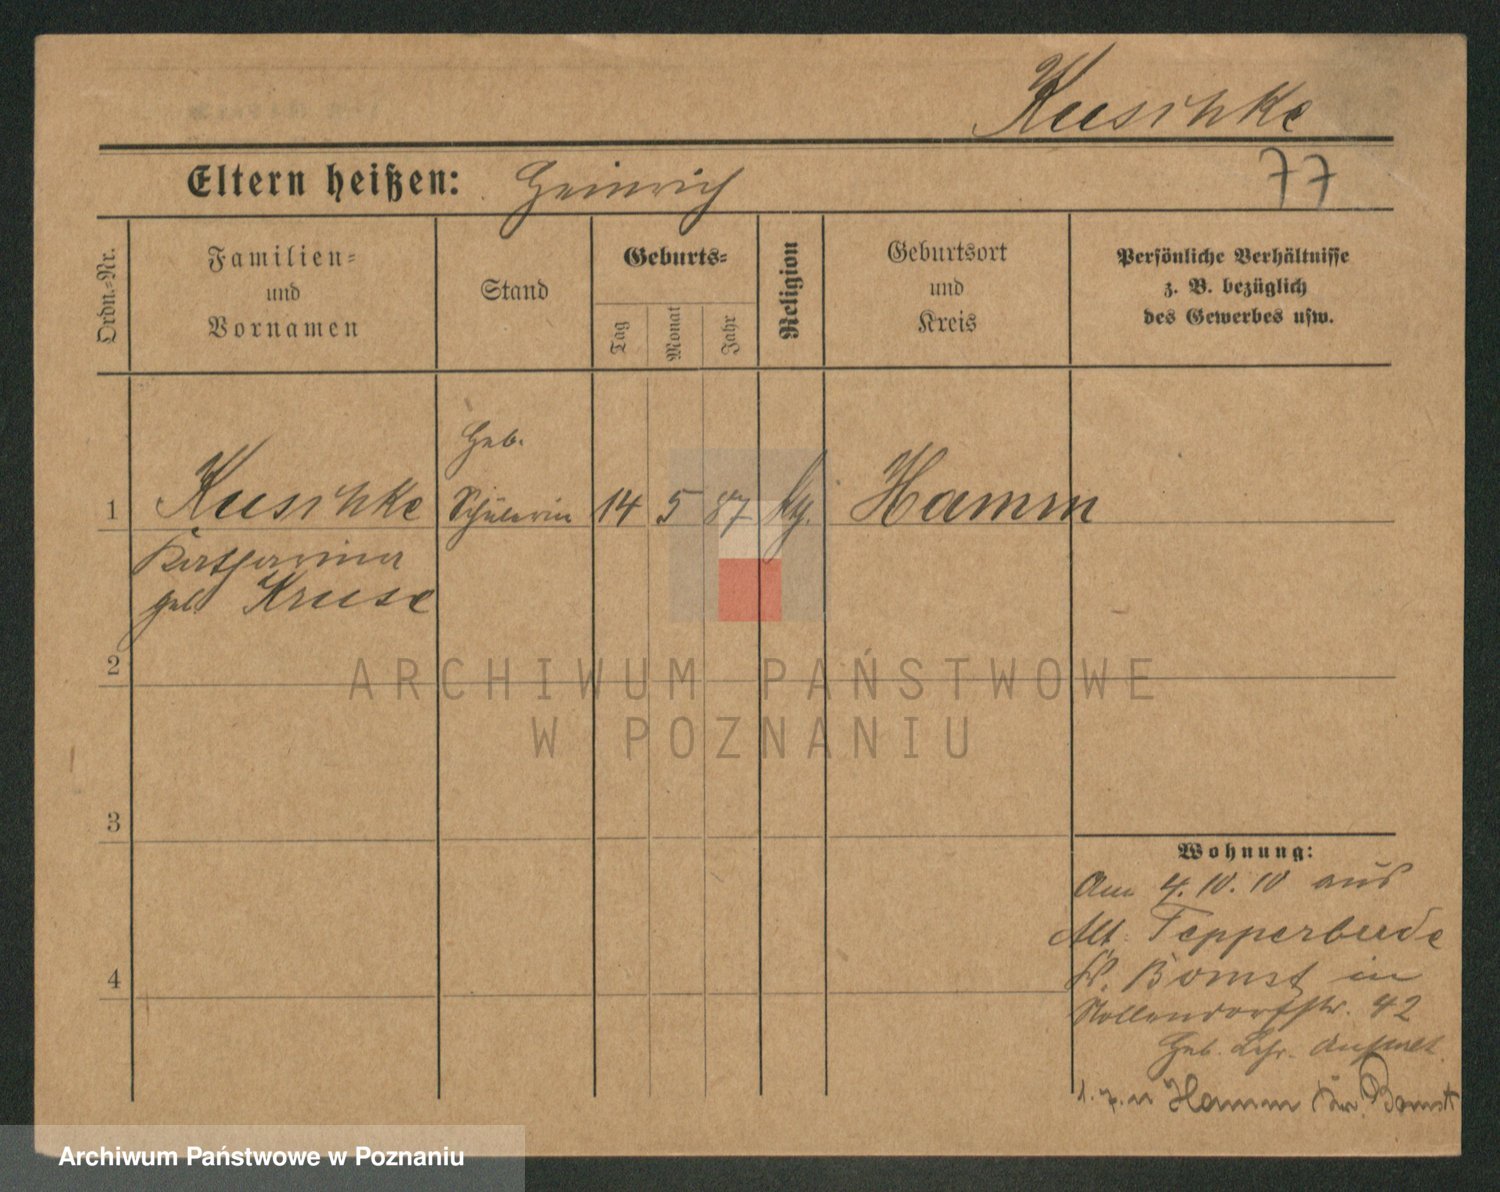 Kuschke
Eltern heißen: Heinrich
77
Ordn.-Nr.
Familien-
und
Vornamen
Stand
Geburts-
Tag
Monat
Jahr
Religion
Geburtsort
und
Kreis
Persönliche Verhältnisse
z. B. bezüglich
des Gewerbes usw.
Heb.
1 Kuschke Schülerin 14 5 87 Hamm
Katharina
geb. Kruse
2
ARCHIWUM PAŃSTWOWE
W POZNANIU
3
Wohnung:
Am 4.10.10 aus
Alt Tepperbude
Kr. Bomst in
Nollendorfstr. 42
4
Heb. Lehr. Anstalt.
Hamm Kr. Bomst
Archiwum Państwowe w Poznaniu